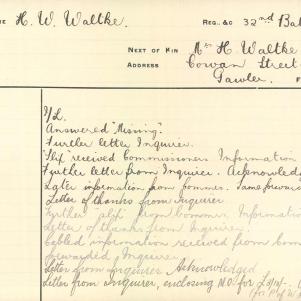 H. W. Waltke. REG. &c 32nd Bat
NEXT OF KIN Mrs H Waltke
ADDRESS Cowan Street
Gawler.
Y/L.
Answered "Missing".
Further letter Inquirer.
"Slix" received Commissioners Information
Further letter from Inquirer. Acknowled
Later information from Commrs. Same forward
Letter of thanks from Inquirer
Further slix from Commr Informatio
Letter of thanks from Inquirer.
Cabled information received from Com
forwarded Inquirer
Letter from Inquirer Acknowledged
Letter from Inquirer, enclosing M.O. for